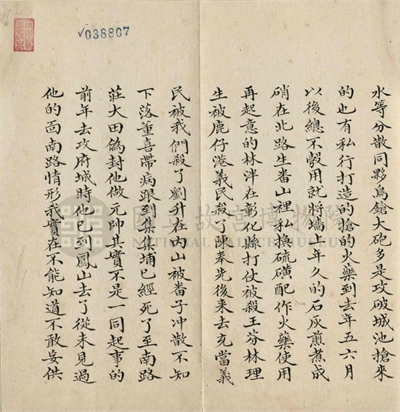 038807
水等分散同夥鳥鎗大砲多是攻破城池搶來
的也有私行打造的鎗的火藥到去年五六月
以後總不彀用就將墻上年久的石灰煎煮成
硝在北路生番山裡私換硫磺配作火藥使用
再起意的林泮在彰化縣打仗被殺王芬林理
生被鹿仔港義民殺了陳奉先後來去充當義
民被我們殺了劉升在內山被番子冲散不知
下落董喜帶病跟到集集埔已經死了至南路
莊大田偽封他做元帥其實不是一同起事的
前年去攻府城時他已到鳳山去了從未見過
他的面南路情形我實在不能知道不敢妄供